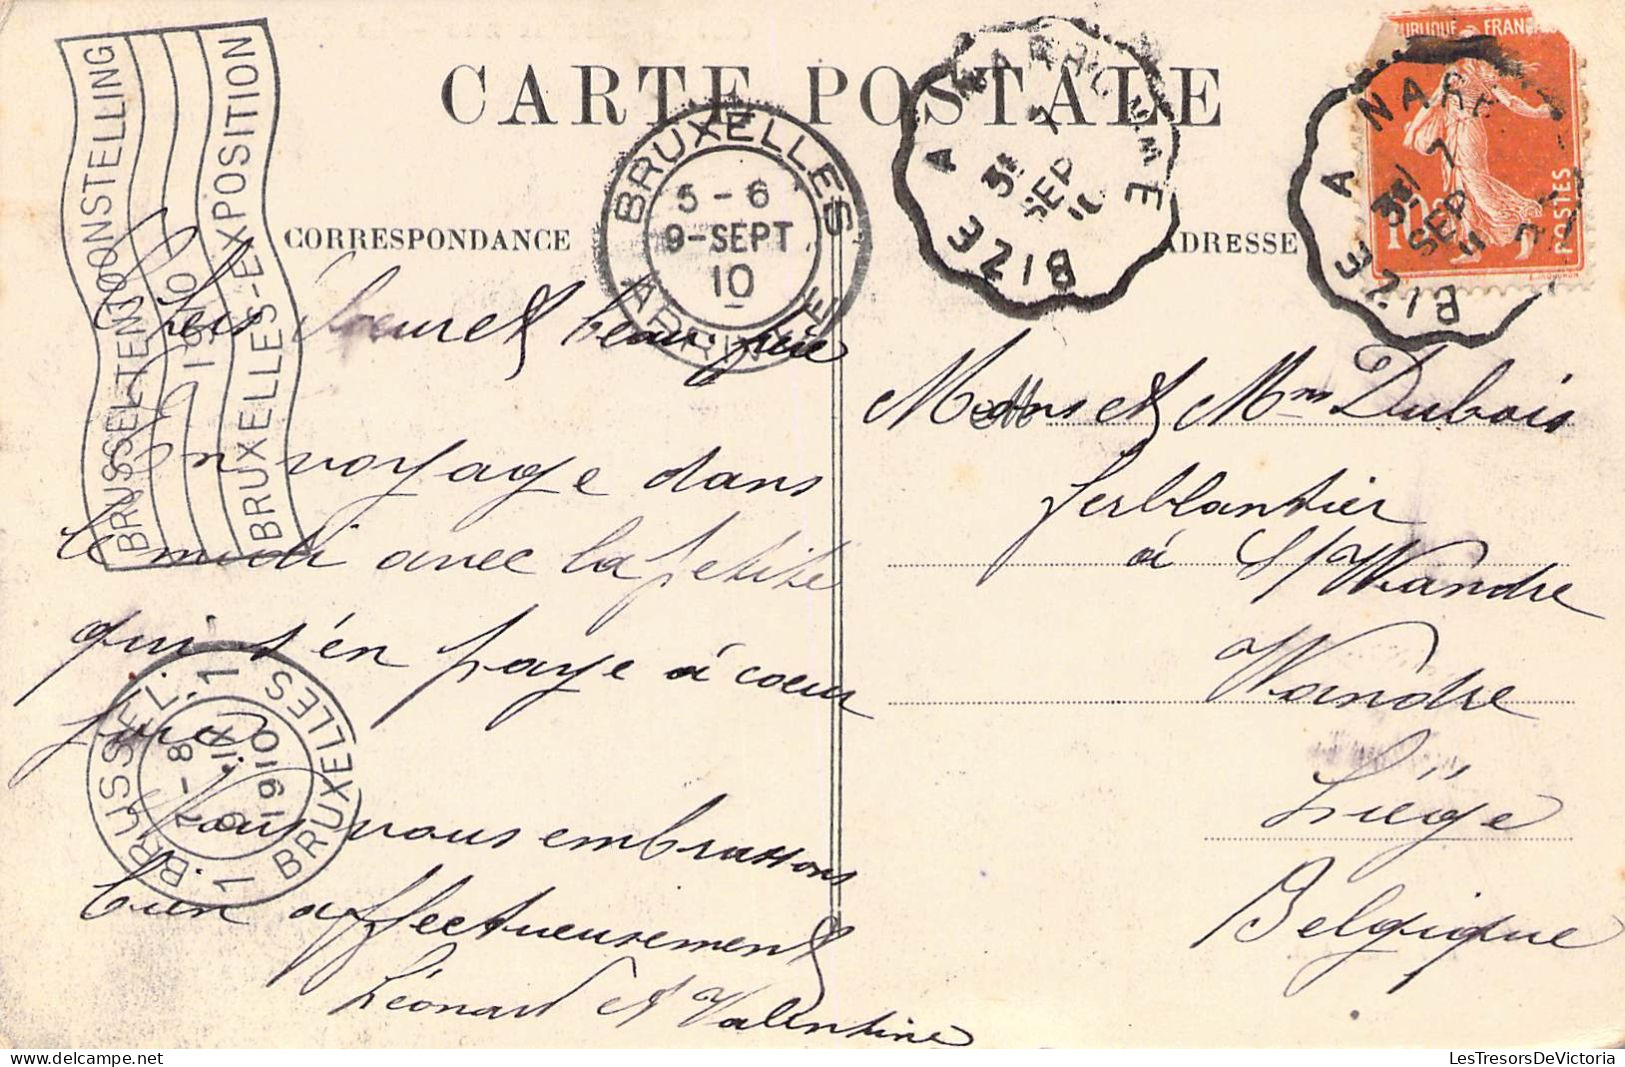 CARTE POSTALE
CORRESPONDANCE
ADRESSE
BRUSSEL-TENTOONSTELLING
1910
BRUXELLES-EXPOSITION
BRUXELLES
5-6
9-SEPT
10
ARRIVEE
3E
7
SEP
BIZE
A NARB
3E
7
SEP
BIZE
REPUBLIQUE FRANÇAISE
10c
POSTES
Chers Soeur et beau-frère
En voyage dans
le midi avec la petite
qui s'en paye à coeur
joie
Nous vous embrassons
bien affectueusement
Léonard et Valentine
BRUSSEL 1
7-8
9 IX
1910
1 BRUXELLES 1
Mons et Mme Dubois
ferblantier
à S/Wandre
Wandre
Liège
Belgique
LesTresorsDeVictoria